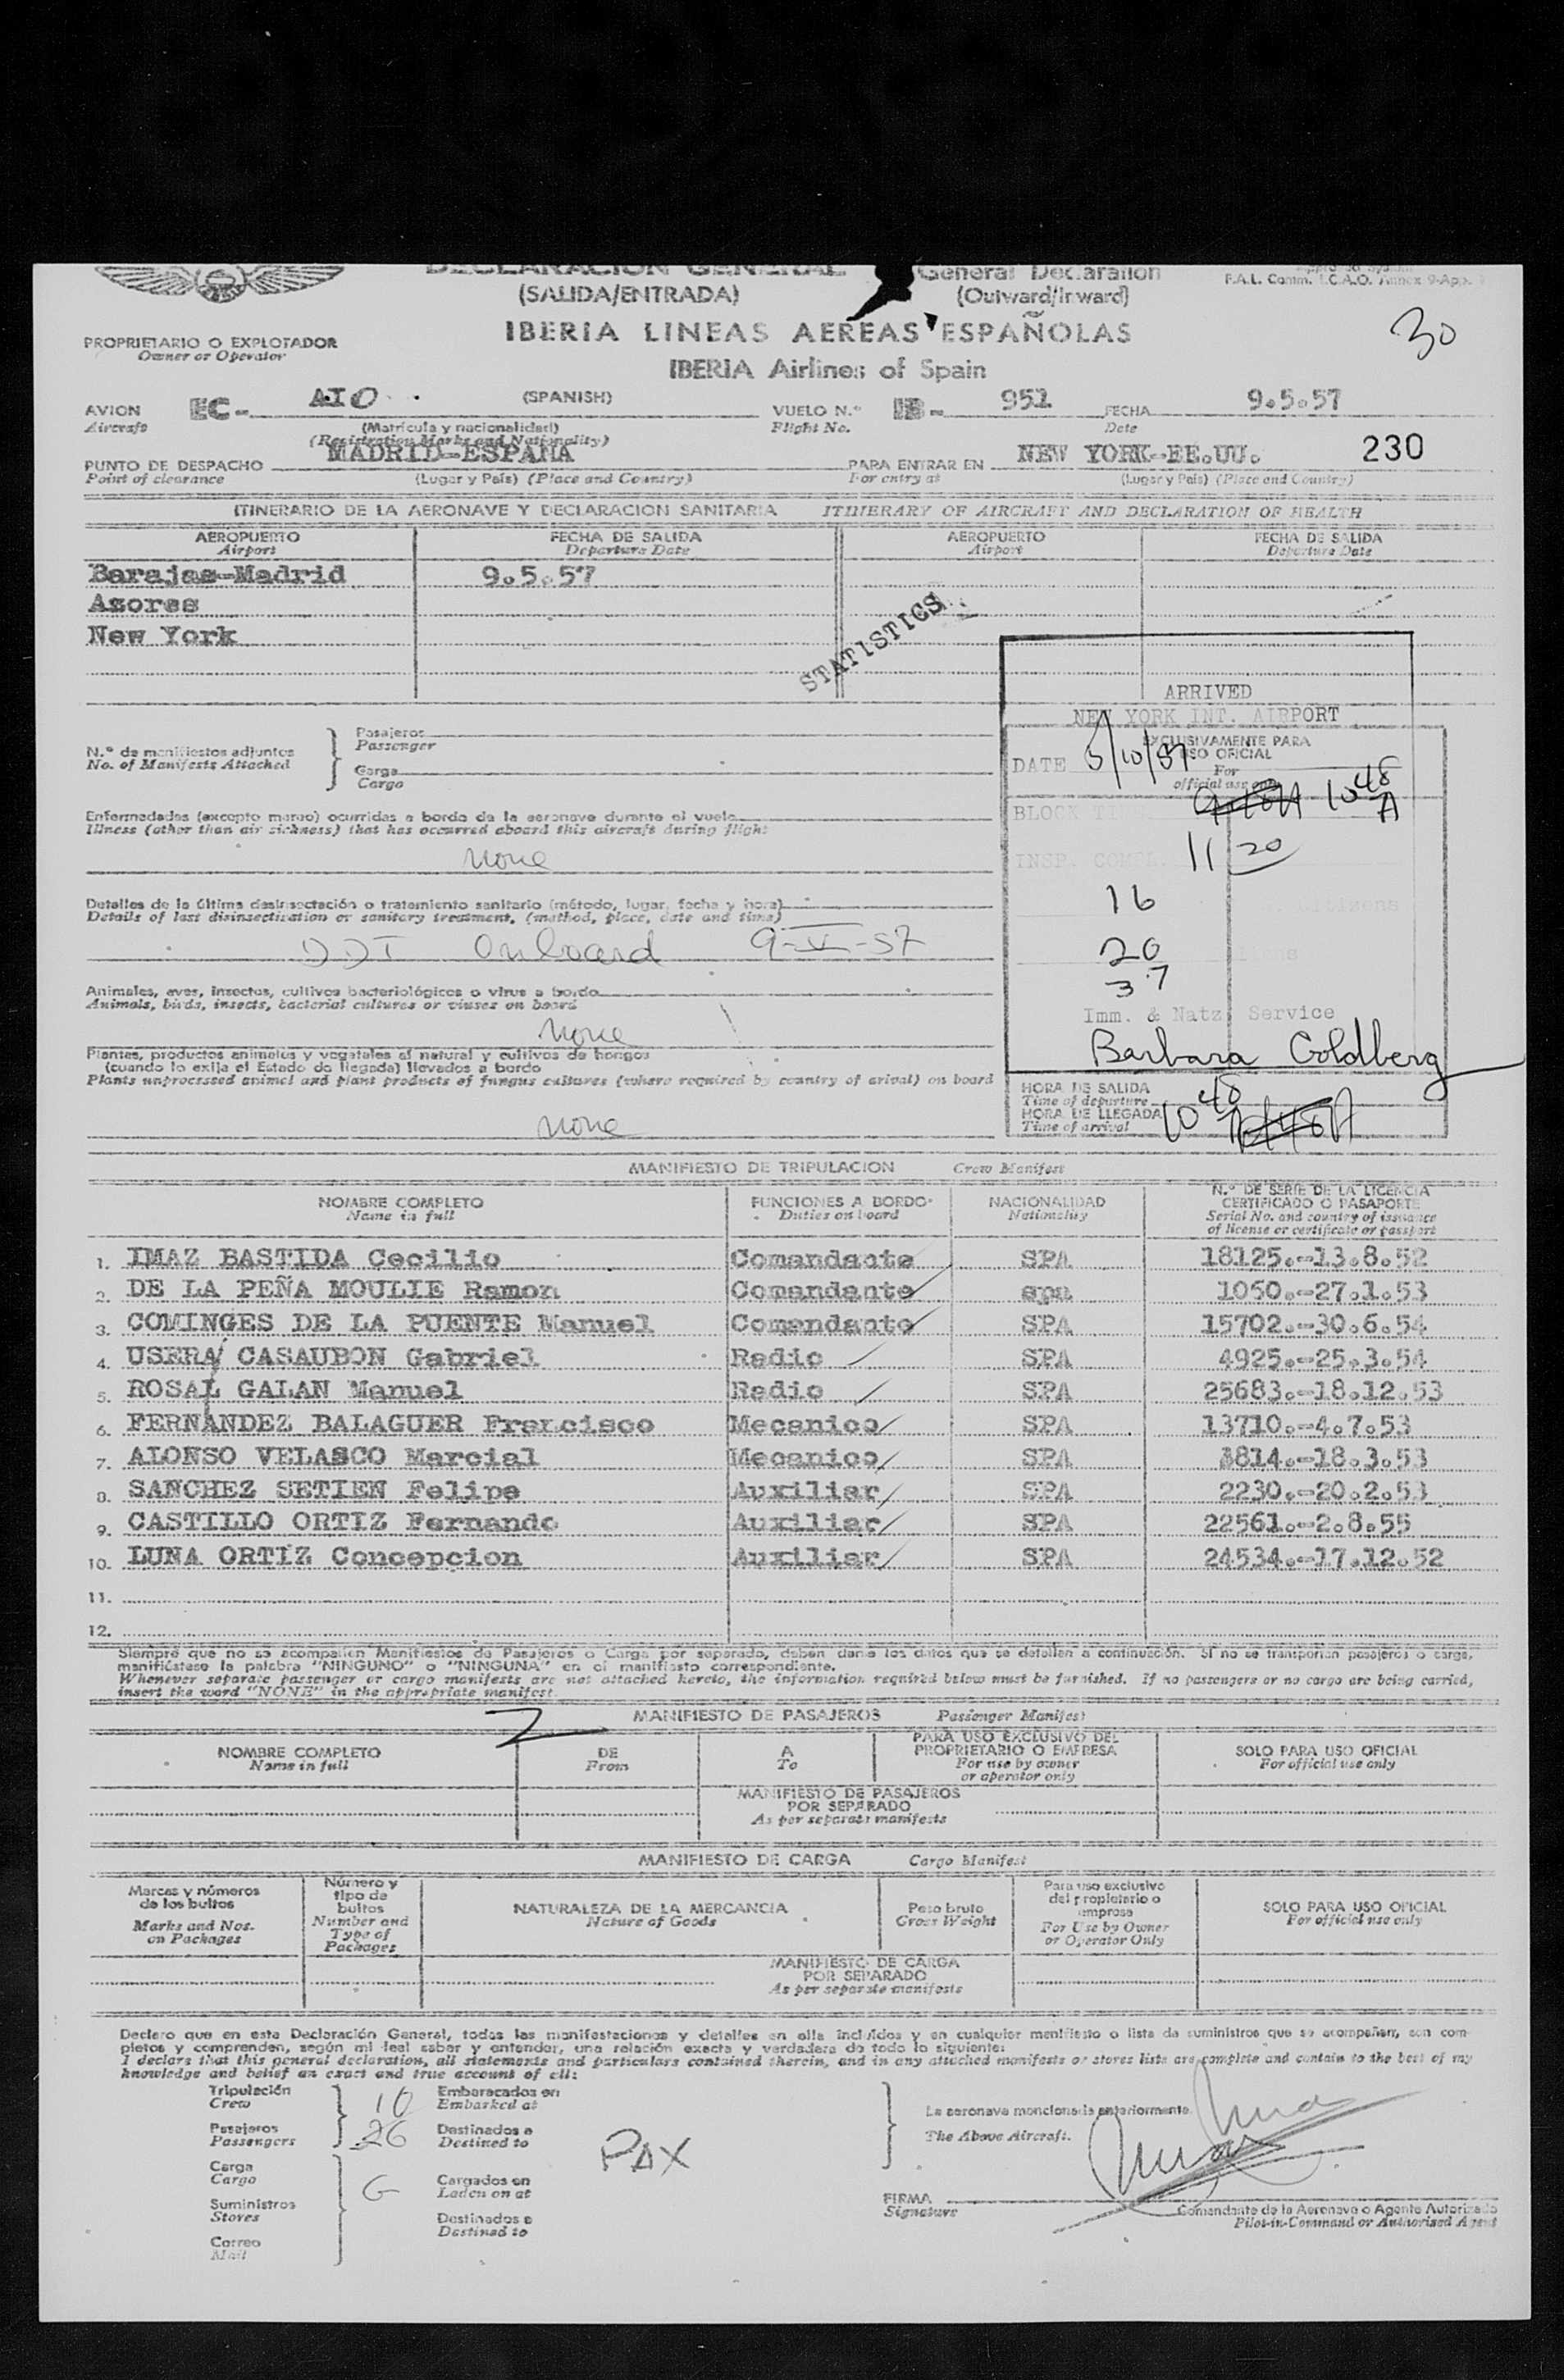 DECLARACION GENERAL General Declaration
(SALIDA/ENTRADA) (Outward/Inward)
F.A.L. Comm. I.C.A.O. Annex 9-App.
IBERIA LINEAS AEREAS ESPAÑOLAS
30
PROPRIETARIO O EXPLOTADOR
Owner or Operator
IBERIA Airlines of Spain
AVION EC- AIO (SPANISH) VUELO N.° IB- 951 FECHA 9.5.57
Aircraft (Matrícula y nacionalidad) Flight No. Date
(Registration Marks and Nationality)
PUNTO DE DESPACHO MADRID-ESPAÑA PARA ENTRAR EN NEW YORK-EE.UU. 230
Point of clearance (Lugar y País) (Place and Country) For entry at (Lugar y País) (Place and Country)
ITINERARIO DE LA AERONAVE Y DECLARACION SANITARIA ITINERARY OF AIRCRAFT AND DECLARATION OF HEALTH
AEROPUERTO FECHA DE SALIDA AEROPUERTO FECHA DE SALIDA
Airport Departure Date Airport Departure Date
Barajas-Madrid 9.5.57
Azores
New York
STATISTICS
ARRIVED
NEW YORK INT. AIRPORT
EXCLUSIVAMENTE PARA
USO OFICIAL
For
official use only
DATE 5/10/57
BLOCK TI 10 48 A
INSP. COMPL. 11 20
16 Citizens
20
37
Imm. & Natz Service
Barbara Goldberg
HORA DE SALIDA
Time of departure
HORA DE LLEGADA 10 48
Time of arrival
N.° de manifiestos adjuntos
No. of Manifests Attached
Pasajeros
Passenger
Carga
Cargo
Enfermedades (excepto mareo) ocurridas a bordo de la aeronave durante el vuelo
Illness (other than air sickness) that has occurred aboard this aircraft during flight
none
Detalles de la última desinsectación o tratamiento sanitario (método, lugar, fecha y hora)
Details of last disinsectization or sanitary treatment, (method, place, date and time)
DDT Onboard 9-V-57
Animales, aves, insectos, cultivos bacteriológicos o virus a bordo
Animals, birds, insects, bacterial cultures or viuses on board
none
Plantas, productos animales y vegetales al natural y cultivos de hongos
(cuando lo exija el Estado de llegada) llevados a bordo
Plants unprocessed animal and plant products of fungus cultures (where required by country of arival) on board
none
MANIFIESTO DE TRIPULACION Crew Manifest
NOMBRE COMPLETO FUNCIONES A BORDO NACIONALIDAD N.° DE SERIE DE LA LICENCIA
CERTIFICADO O PASAPORTE
Name in full Duties on board Nationality Serial No. and country of issuance
of license or certificate or passport
1. IMAZ BASTIDA Cecilio Comandante SPA 18125.-13.8.52
2. DE LA PEÑA MOULIE Ramon Comandante spa 1050.-27.1.53
3. COMINGES DE LA PUENTE Manuel Comandante SPA 15702.-30.6.54
4. USERA CASAUBON Gabriel Radio SPA 4925.-25.3.54
5. ROSAL GALAN Manuel Radio SPA 25683.-18.12.53
6. FERNANDEZ BALAGUER Francisco Mecanico SPA 13710.-4.7.53
7. ALONSO VELASCO Marcial Mecanico SPA 3814.-18.3.53
8. SANCHEZ SETIEN Felipe Auxiliar SPA 2230.-20.2.53
9. CASTILLO ORTIZ Fernando Auxiliar SPA 22561.-2.8.55
10. LUNA ORTIZ Concepcion Auxiliar SPA 24534.-17.12.52
11.
12.
Siempre que no se acompañen Manifiestos de Pasajeros o Carga por separado, deben darse los datos que se detallan a continuación. Si no se transportan pasajeros o carga,
manifiéstese la palabra "NINGUNO" o "NINGUNA" en el manifiesto correspondiente.
Whenever separate passenger or cargo manifests are not attached hereto, the information required below must be furnished. If no passengers or no cargo are being carried,
insert the word "NONE" in the appropriate manifest.
MANIFIESTO DE PASAJEROS Passenger Manifest
NOMBRE COMPLETO DE A PARA USO EXCLUSIVO DEL
PROPRIETARIO O EMPRESA SOLO PARA USO OFICIAL
Name in full From To For use by owner
or operator only For official use only
MANIFIESTO DE PASAJEROS
POR SEPARADO
As per separate manifests
MANIFIESTO DE CARGA Cargo Manifest
Marcas y números
de los bultos
Marks and Nos.
on Packages
Número y
tipo de
bultos
Number and
Type of
Packages
NATURALEZA DE LA MERCANCIA
Nature of Goods
Peso bruto
Gross Weight
Para uso exclusivo
del propietario o
empresa
For Use by Owner
or Operator Only
SOLO PARA USO OFICIAL
For official use only
MANIFIESTO DE CARGA
POR SEPARADO
As per separate manifests
Declaro que en esta Declaración General, todas las manifestaciones y detalles en ella incluídos y en cualquier manifiesto o lista de suministros que se acompañen, son com-
pletos y comprenden, según mi leal saber y entender, una relación exacta y verdadera de todo lo siguiente:
I declare that this general declaration, all statements and particulars contained therein, and in any attached manifests or stores lists are complete and contain to the best of my
knowledge and belief an exact and true account of all:
Tripulación 10 Embaracados en
Crew Embarked at
Pasajeros 26 Destinados a
Passengers Destined to
PAX
La aeronave mencionada anteriormente.
The Above Aircraft.
Carga G Cargados en
Cargo Laden on at
Suministros Destinados a
Stores Destined to
Correo
Mail
FIRMA
Signature
Comandante de la Aeronave o Agente Autorizado
Pilot-in-Command or Authorised Agent